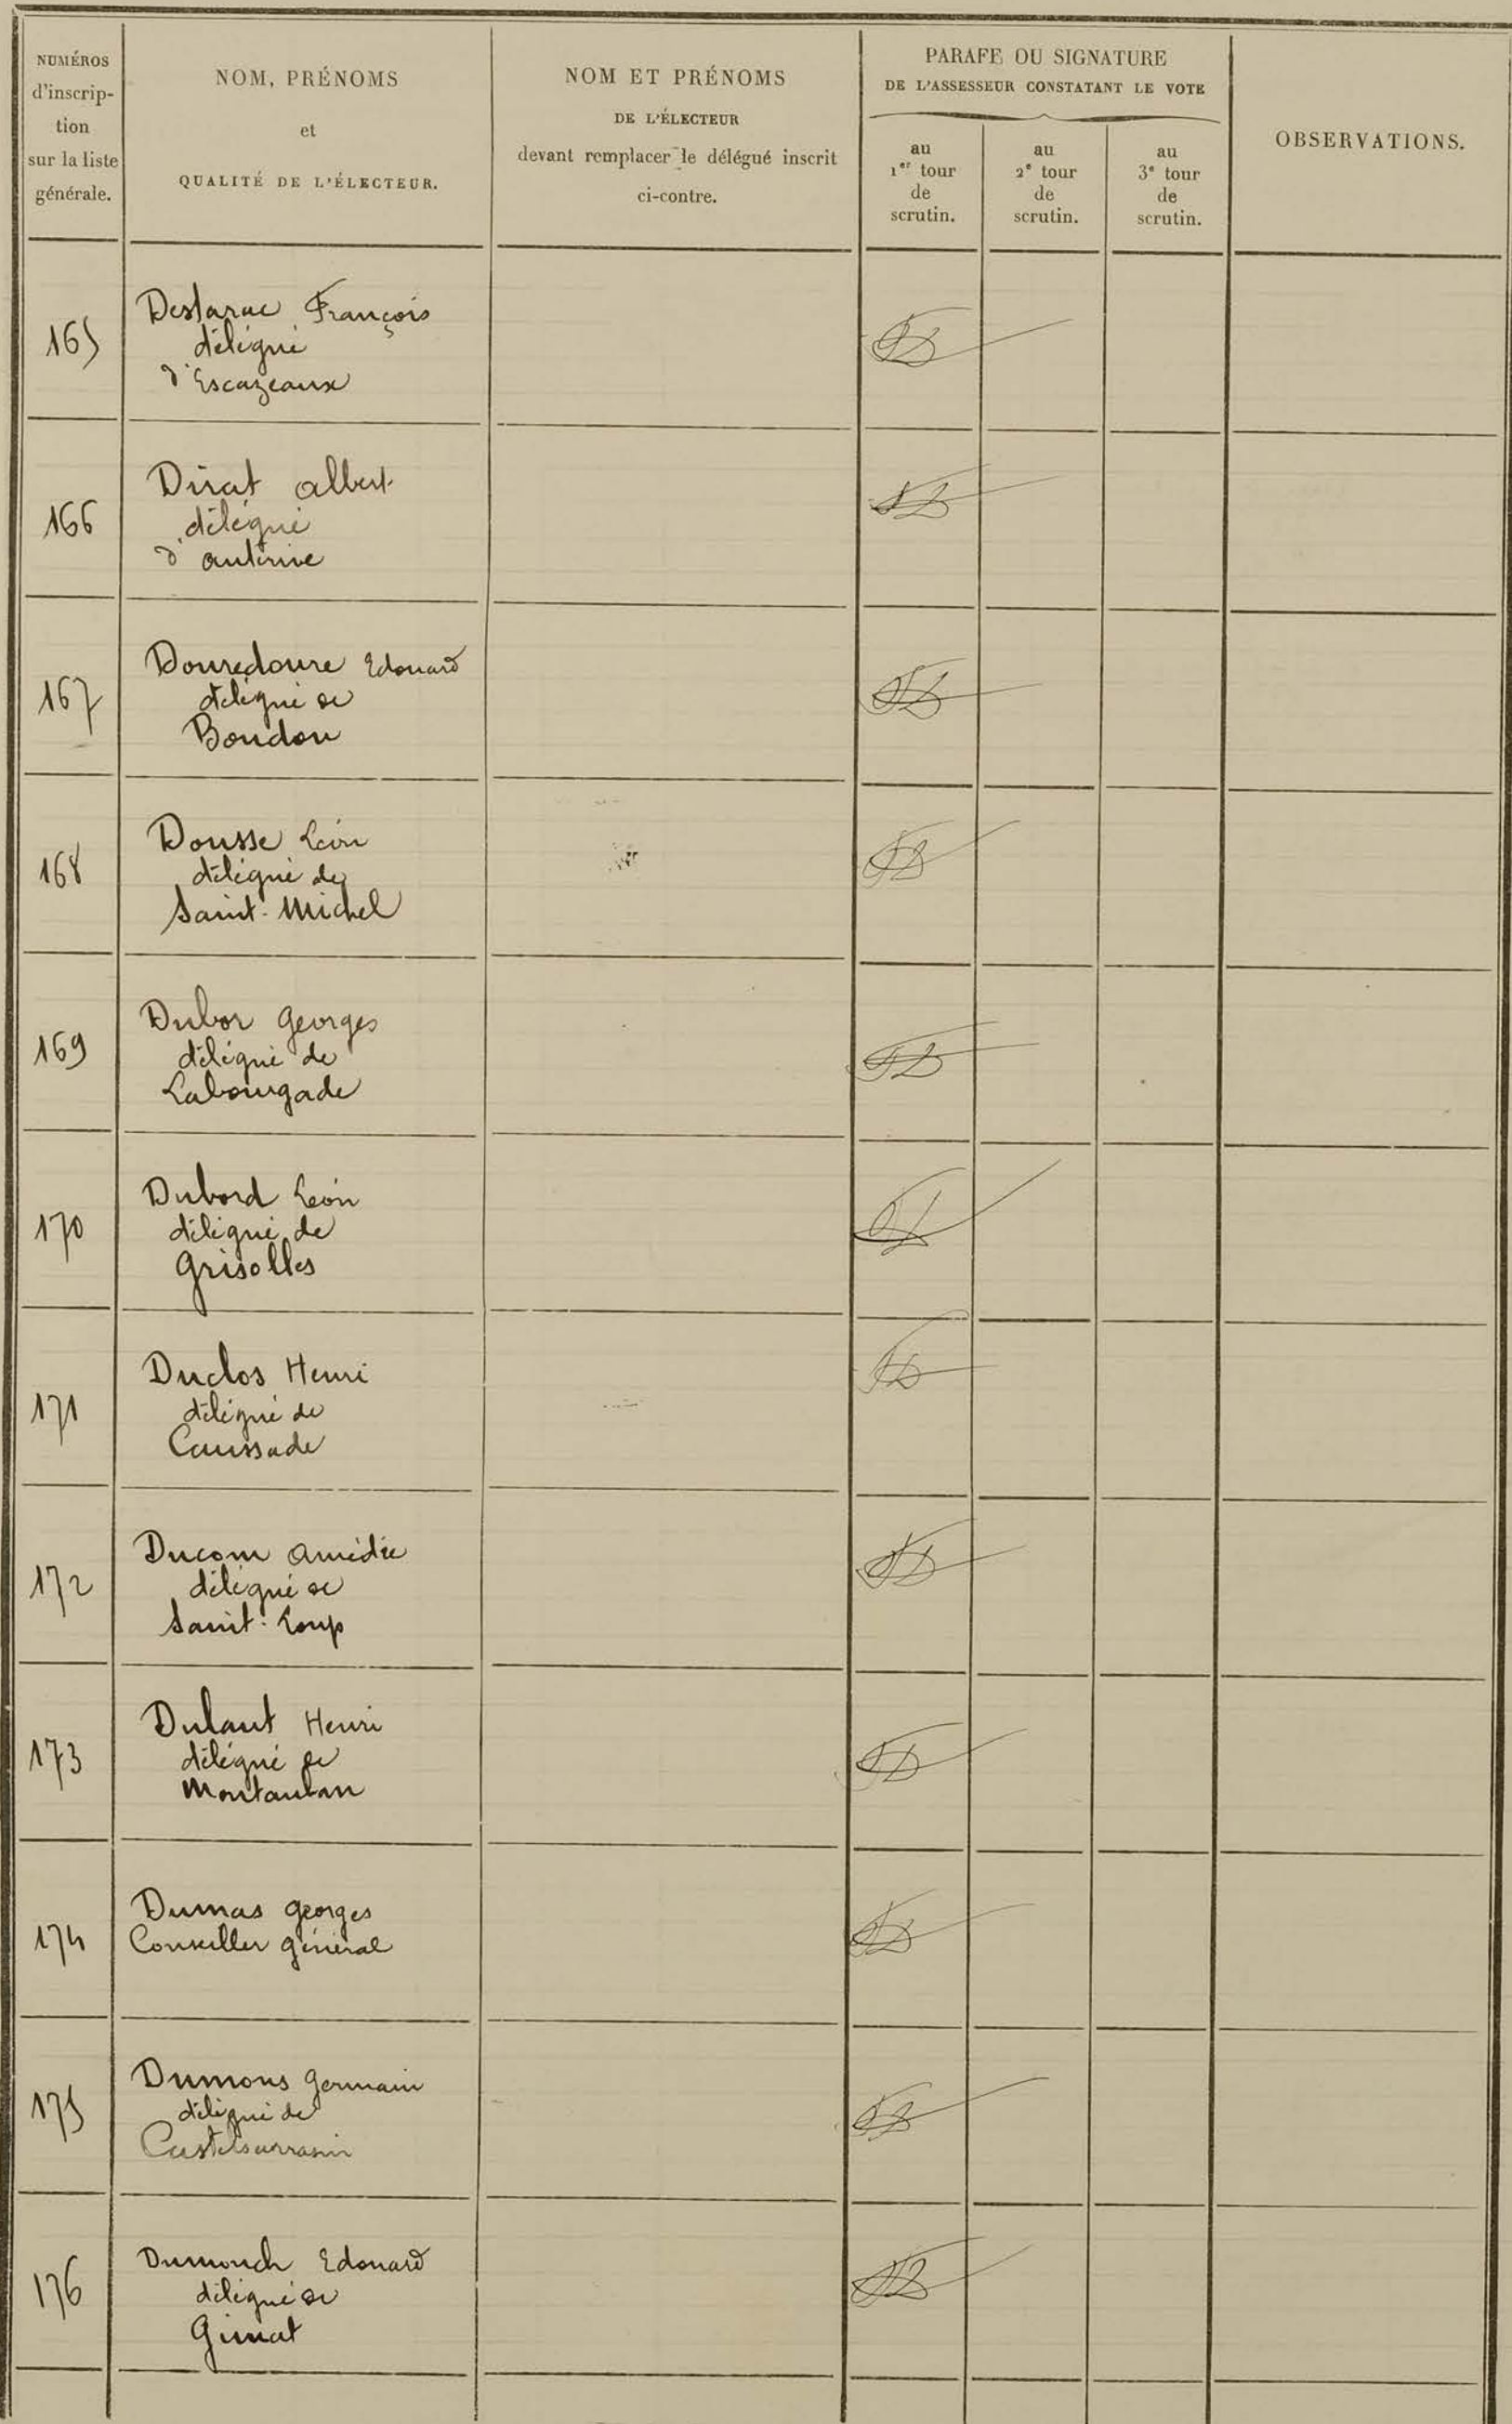 NUMÉROS
d'inscrip-
tion
sur la liste
générale.
NOM, PRÉNOMS
et
QUALITÉ DE L'ÉLECTEUR.
NOM ET PRÉNOMS
DE L'ÉLECTEUR
devant remplacer le délégué inscrit
ci-contre.
PARAFE OU SIGNATURE
DE L'ASSESSEUR CONSTATANT LE VOTE
au
1er tour
de
scrutin.
au
2e tour
de
scrutin.
au
3e tour
de
scrutin.
OBSERVATIONS.
165
Destarac François
délégué
d'Escazeaux
166
Dirat Albert
délégué
d'Auterive
167
Douredoure Edouard
délégué de
Boudou
168
Dousse Léon
délégué de
Saint-Michel
169
Dubor Georges
délégué de
Labourgade
170
Dubord Léon
délégué de
Grisolles
171
Duclos Henri
délégué de
Caussade
172
Ducom Amédée
délégué de
Saint-Loup
173
Dulaut Henri
délégué de
Montauban
174
Dumas Georges
Conseiller général
175
Dumons Germain
délégué de
Castelsarrasin
176
Dumouch Edouard
délégué de
Gimat